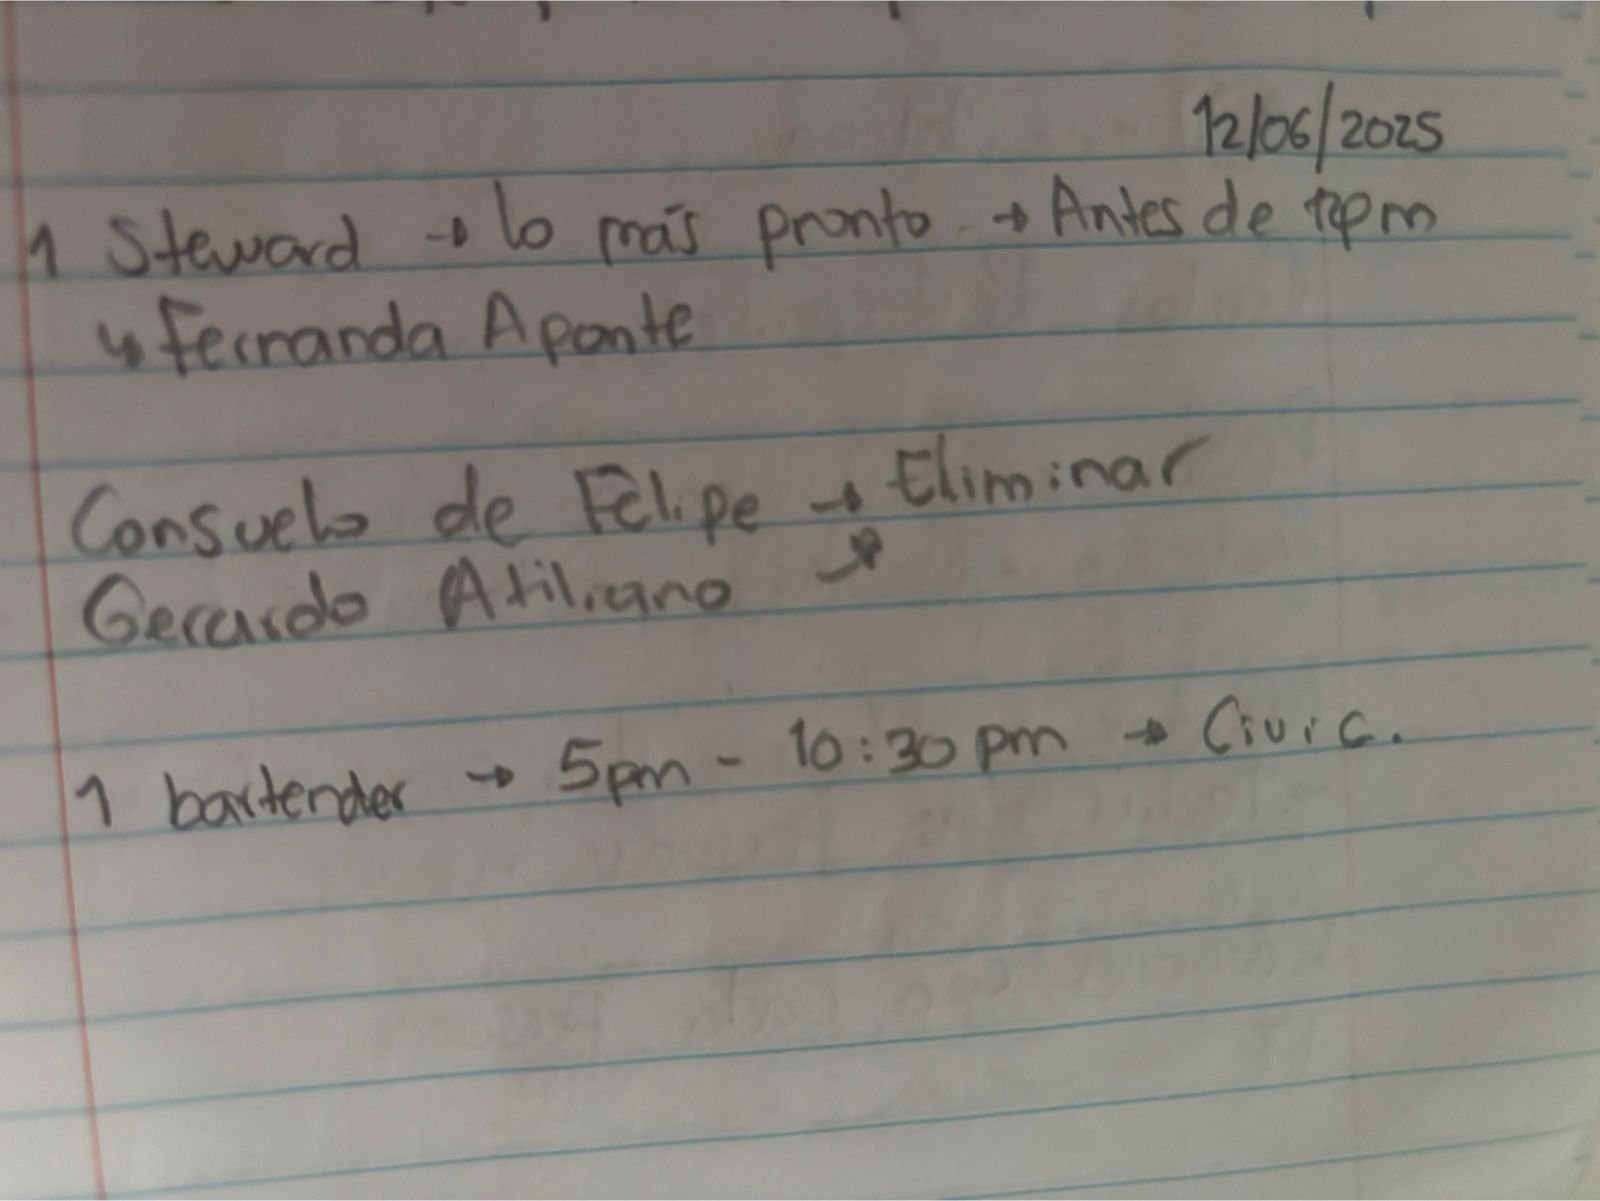 12/06/2025
1 Steward → lo más pronto → Antes de 12pm
↳ Fernanda Aponte
Consuelo de Felipe → Eliminar
Gerardo Atiliano ↗
1 bartender → 5pm - 10:30 pm → Civic.